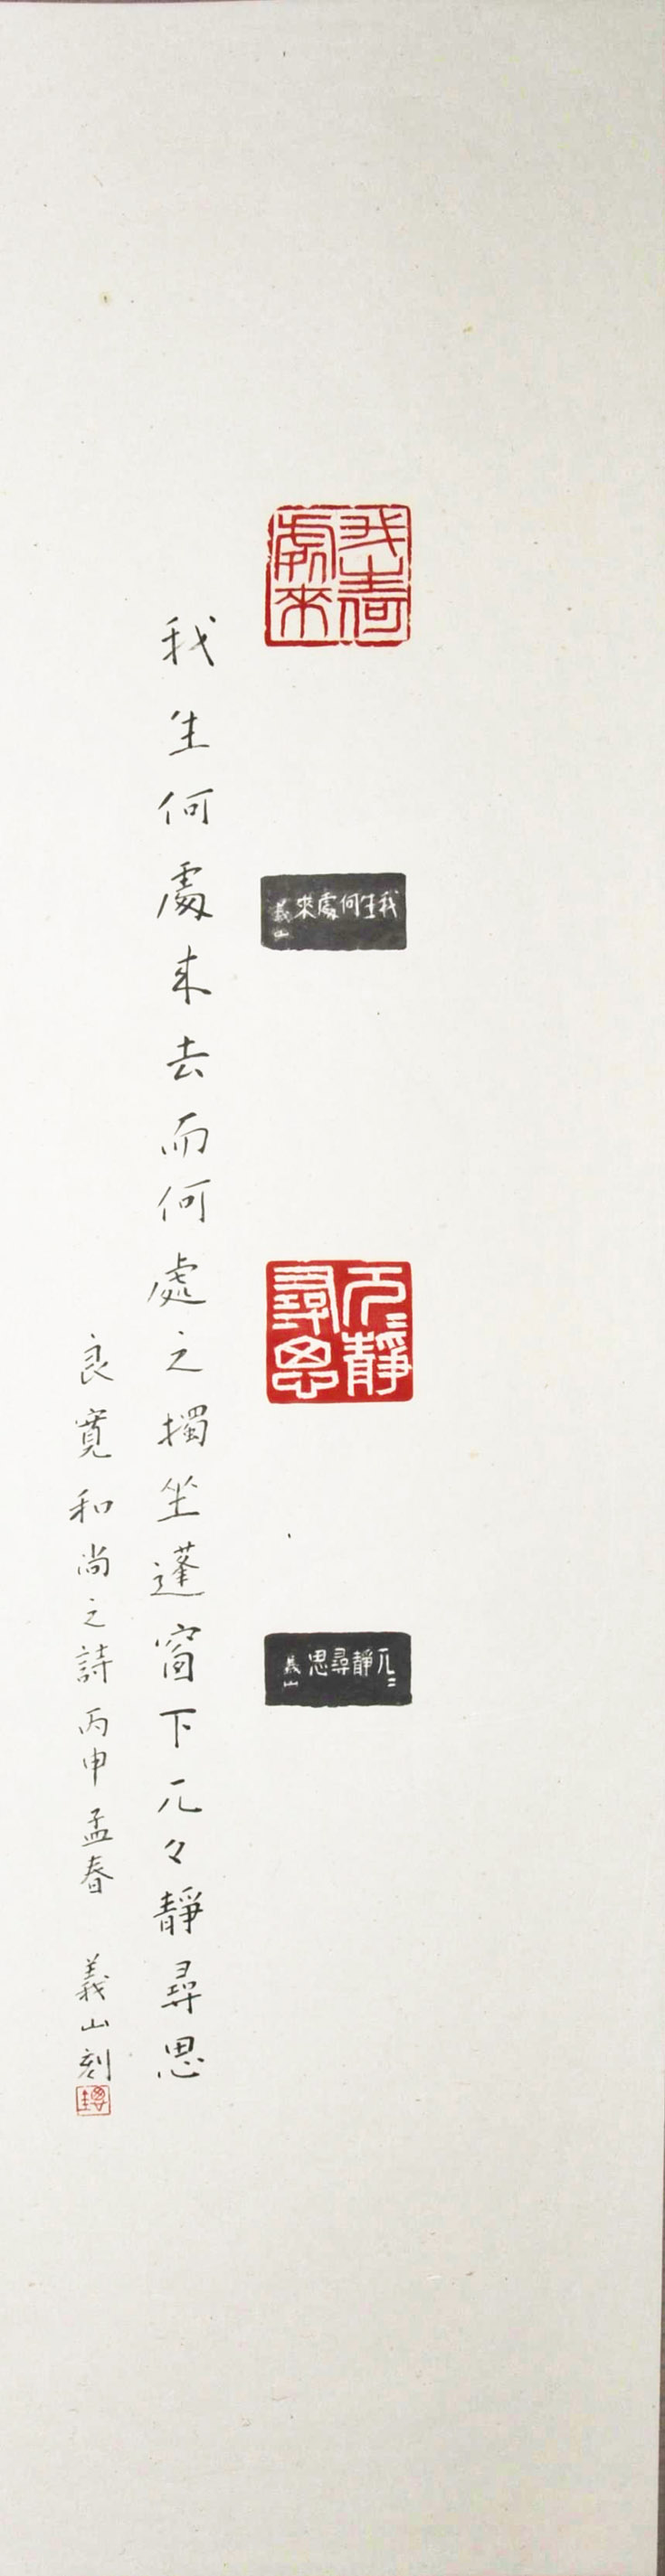 我生何處來
我生何處來
義山
兀〻靜尋思
兀〻靜尋思
義山
我生何處来去而何處之獨坐蓬窗下兀々靜尋思
良寛和尚之詩丙申孟春 義山刻